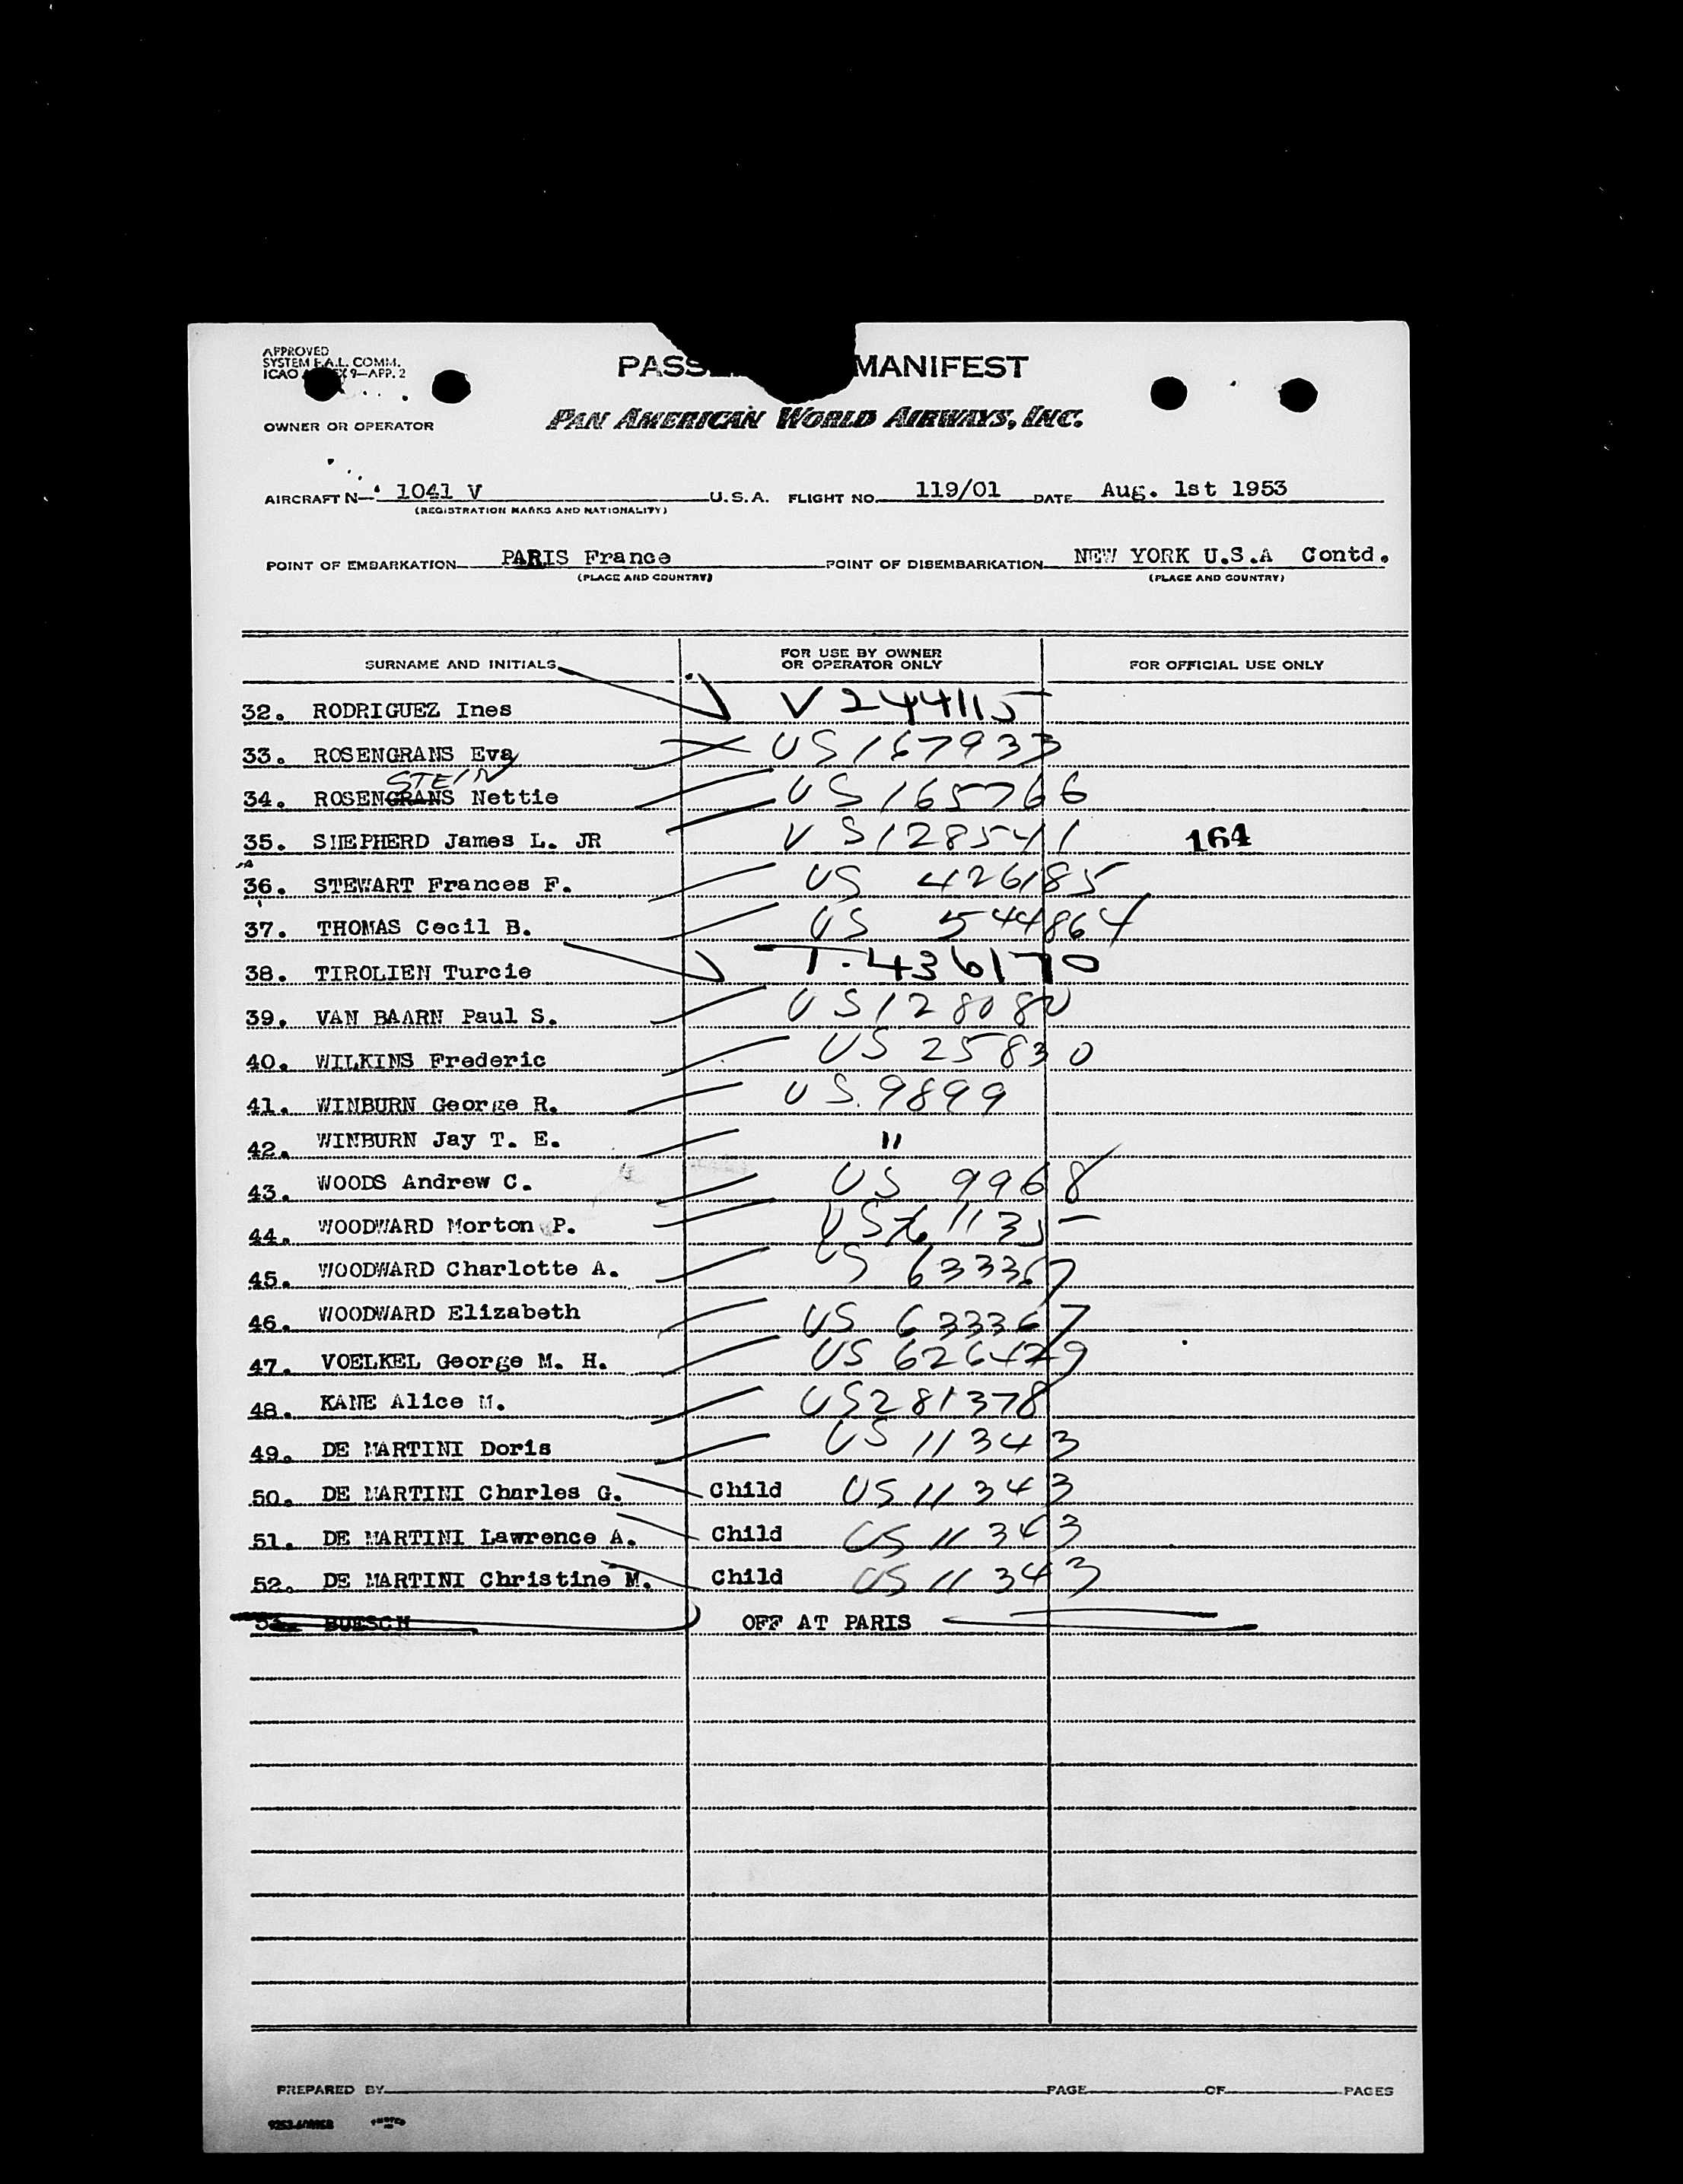 APPROVED
SYSTEM F.A.L. COMM.
ICAO 9—APP. 2
PASS MANIFEST
OWNER OR OPERATOR
PAN AMERICAN WORLD AIRWAYS, INC.
AIRCRAFT N— 1041 V U.S.A. FLIGHT NO. 119/01 DATE Aug. 1st 1953
(REGISTRATION MARKS AND NATIONALITY)
POINT OF EMBARKATION PARIS France POINT OF DISEMBARKATION NEW YORK U.S.A Contd.
(PLACE AND COUNTRY) (PLACE AND COUNTRY)
SURNAME AND INITIALS FOR USE BY OWNER OR OPERATOR ONLY FOR OFFICIAL USE ONLY
32. RODRIGUEZ Ines V 244115
33. ROSENGRANS Eva US 167933
STEIN
34. ROSENGRANS Nettie US 165766
35. SHEPHERD James L. JR US 128541 164
36. STEWART Frances F. US 426185
37. THOMAS Cecil B. US 544864
38. TIROLIEN Turcie T. 436170
39. VAN BAARN Paul S. US 128080
40. WILKINS Frederic US 25830
41. WINBURN George R. US. 9899
42. WINBURN Jay T. E. "
43. WOODS Andrew C. US 9968
44. WOODWARD Morton P. US
45. WOODWARD Charlotte A. US 633367
46. WOODWARD Elizabeth US 633367
47. VOELKEL George M. H. US 626429
48. KANE Alice M. US 281378
49. DE MARTINI Doris US 11343
50. DE MARTINI Charles G. Child US 11343
51. DE MARTINI Lawrence A. Child US 11343
52. DE MARTINI Christine M. Child US 11343
53. BUESCH OFF AT PARIS
PREPARED BY PAGE OF PAGES